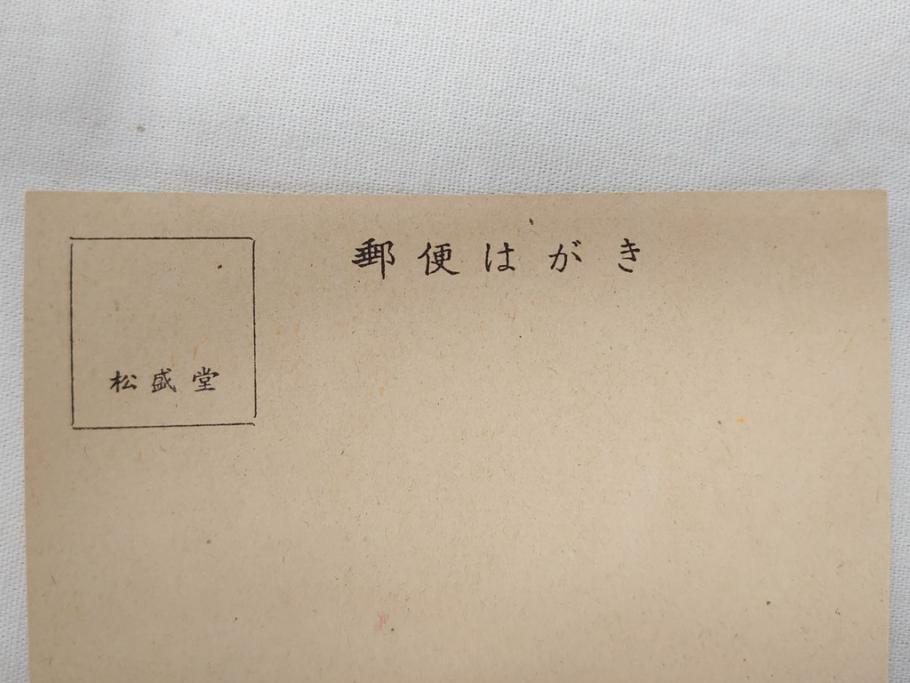 郵便はがき
松盛堂